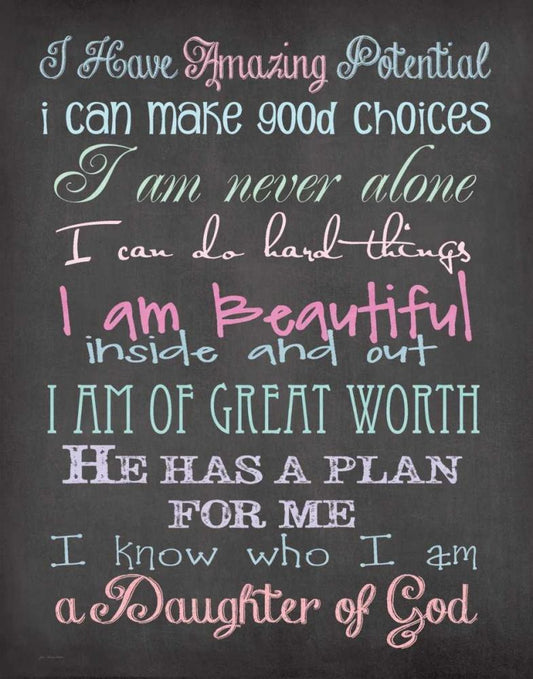 I Have Amazing Potential
i can make good choices
I am never alone
I can do hard things
I am Beautiful
inside and out
I AM OF GREAT WORTH
HE HAS A PLAN
FOR ME
I know who I am
a Daughter of God